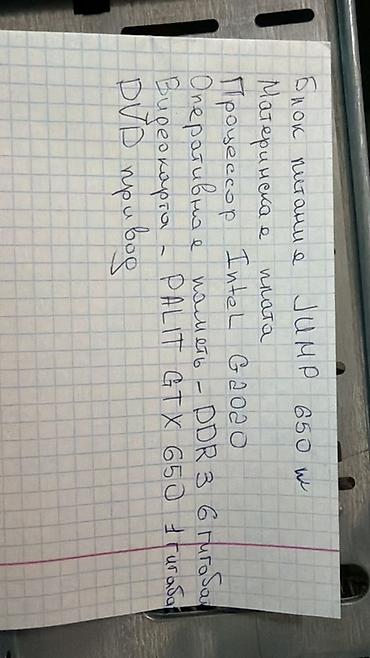 Блок питания JUMP 650 w
Материнская плата
Процессор Intel G2020
Оперативная память - DDR3 6 гигабай
Видеокарта - PALIT GTX 650 1 гигаба
DVD привод